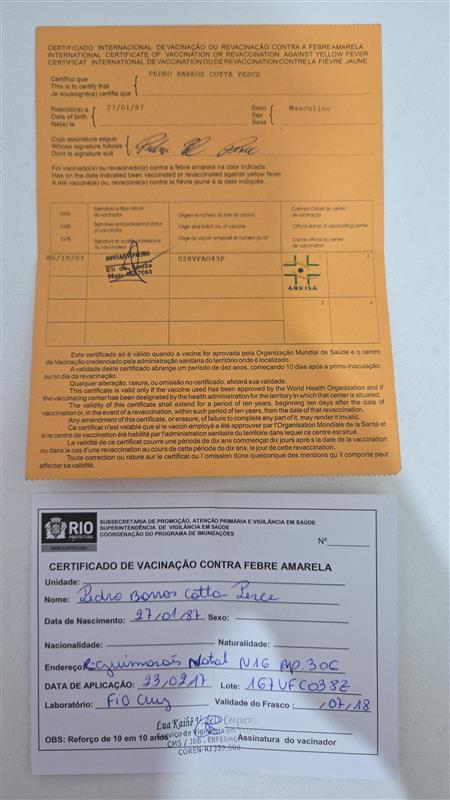 CERTIFICADO INTERNACIONAL DE VACINAÇÃO OU REVACINAÇÃO CONTRA A FEBRE AMARELA
INTERNATIONAL CERTIFICATE OF VACCINATION OR REVACCINATION AGAINST YELLOW FEVER
CERTIFICAT INTERNATIONAL DE VACCINATION OU DE REVACCINATION CONTRE LA FIÈVRE JAUNE
PEDRO BARROS COTTA PESCE
Certifico que
This is to certify that
Je soussigné(e) certifie que
27/01/87
Masculino
Nascido(a) a
Date of birth
Né(e) le
Sexo
Sex
Sexe
Cuja assinatura segue
Whose signature follows
Dont la signature suit
Foi vacinado(a) ou revacinado(a) contra a febre amarela na data indicada.
Has on the date indicated been vaccinated or revaccinated against yellow fever.
A eté vacciné(e) ou, revacciné(e) contre la fièvre jaune à la date indiquée.
DATA
DATE
DATE
Assinatura e título oficial do vacinador
Signature and professional status of vaccinator
Signature et qualité professionnel du vaccinateur
Origem e número do lote da vacina
Origin and batch no. of vaccine
Origine du vaccin employé et numéro du lot
Carimbo Oficial do centro de vacinação
Official stamp of vaccinating center
Cachet officiel du centre de vaccination
06/10/03
020VFA043P
A.N.V.I.S.A.
Este certificado só é válido quando a vacina for aprovada pela Organização Mundial da Saúde e o centro
de Vacinação credenciado pela administração sanitária do território onde é localizado.
A validade deste certificado abrange um período de dez anos, começando 10 dias após a primo-inoculação,
ou no dia da revacinação.
Qualquer alteração, rasura, ou omissão no certificado, afetará sua validade.
This certificate is valid only if the vaccine used has been approved by the World Health Organization and if
the vaccinating center has been designated by the health administration for the territory in which that center is situated.
The validity of this certificate shall extend for a period of ten years, beginning ten days after the date of
vaccination or, in the event of a revaccination, within such period of ten years, from the date of that revaccination.
Any amendment of this certificate, or erasure, of failure to complete any part of it, may render it invalid.
Ce certificat n'est valable que si le vaccin employé a été approuver par l'Organisation Mondiale de la Santé et
si le centre de vaccination été habilité par l'administration sanitaire du territoire dans lequel ce centre est situé.
La validité de ce certificat couvre une période de dix ans commençant dix jours après la date de la vaccination
ou dans le cas d'une revaccination au cours de cette période de dix ans, le jour de cette revaccination.
Toute correction ou rature sur le certificat ou l'omission d'une quelconque des mentions qu'il comporte peut
affecter sa validité.
RIO
PREFEITURA
SUBSECRETARIA DE PROMOÇÃO, ATENÇÃO PRIMÁRIA E VIGILÂNCIA EM SAÚDE
SUPERINTENDÊNCIA DE VIGILÂNCIA EM SAÚDE
COORDENAÇÃO DO PROGRAMA DE IMUNIZAÇÕES
Nº
CERTIFICADO DE VACINAÇÃO CONTRA FEBRE AMARELA
Unidade:
Nome: Pedro Barros Cotta Pesce
Data de Nascimento: 27/01/87 Sexo:
Nacionalidade: Naturalidade:
Endereço: R. guimarães Natal N16 Ap. 306
DATA DE APLICAÇÃO: 23/02/17 Lote: 167VFC038Z
Laboratório: FIO Cruz Validade do Frasco : /07/18
OBS: Reforço de 10 em 10 anos
Assinatura do vacinador